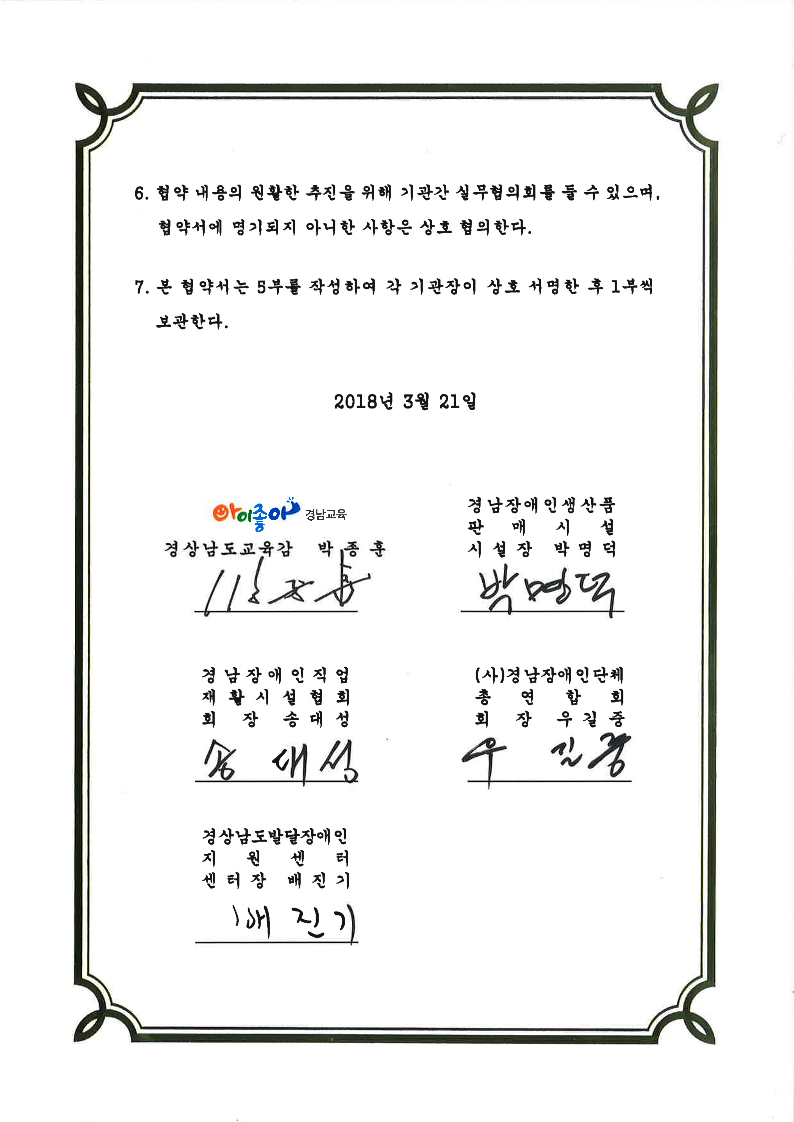 6. 협약 내용의 원활한 추진을 위해 기관간 실무협의회를 둘 수 있으며,
협약서에 명기되지 아니한 사항은 상호 협의한다.
7. 본 협약서는 5부를 작성하여 각 기관장이 상호 서명한 후 1부씩
보관한다.
2018년 3월 21일
아이좋아 경남교육
경상남도교육감 박종훈
경남장애인생산품
판매시설
시설장 박명덕
박명덕
경남장애인직업
재활시설협회
회장 송대성
송대성
(사)경남장애인단체
총연합회
회장 우길중
우길중
경상남도발달장애인
지원센터
센터장 배진기
배진기